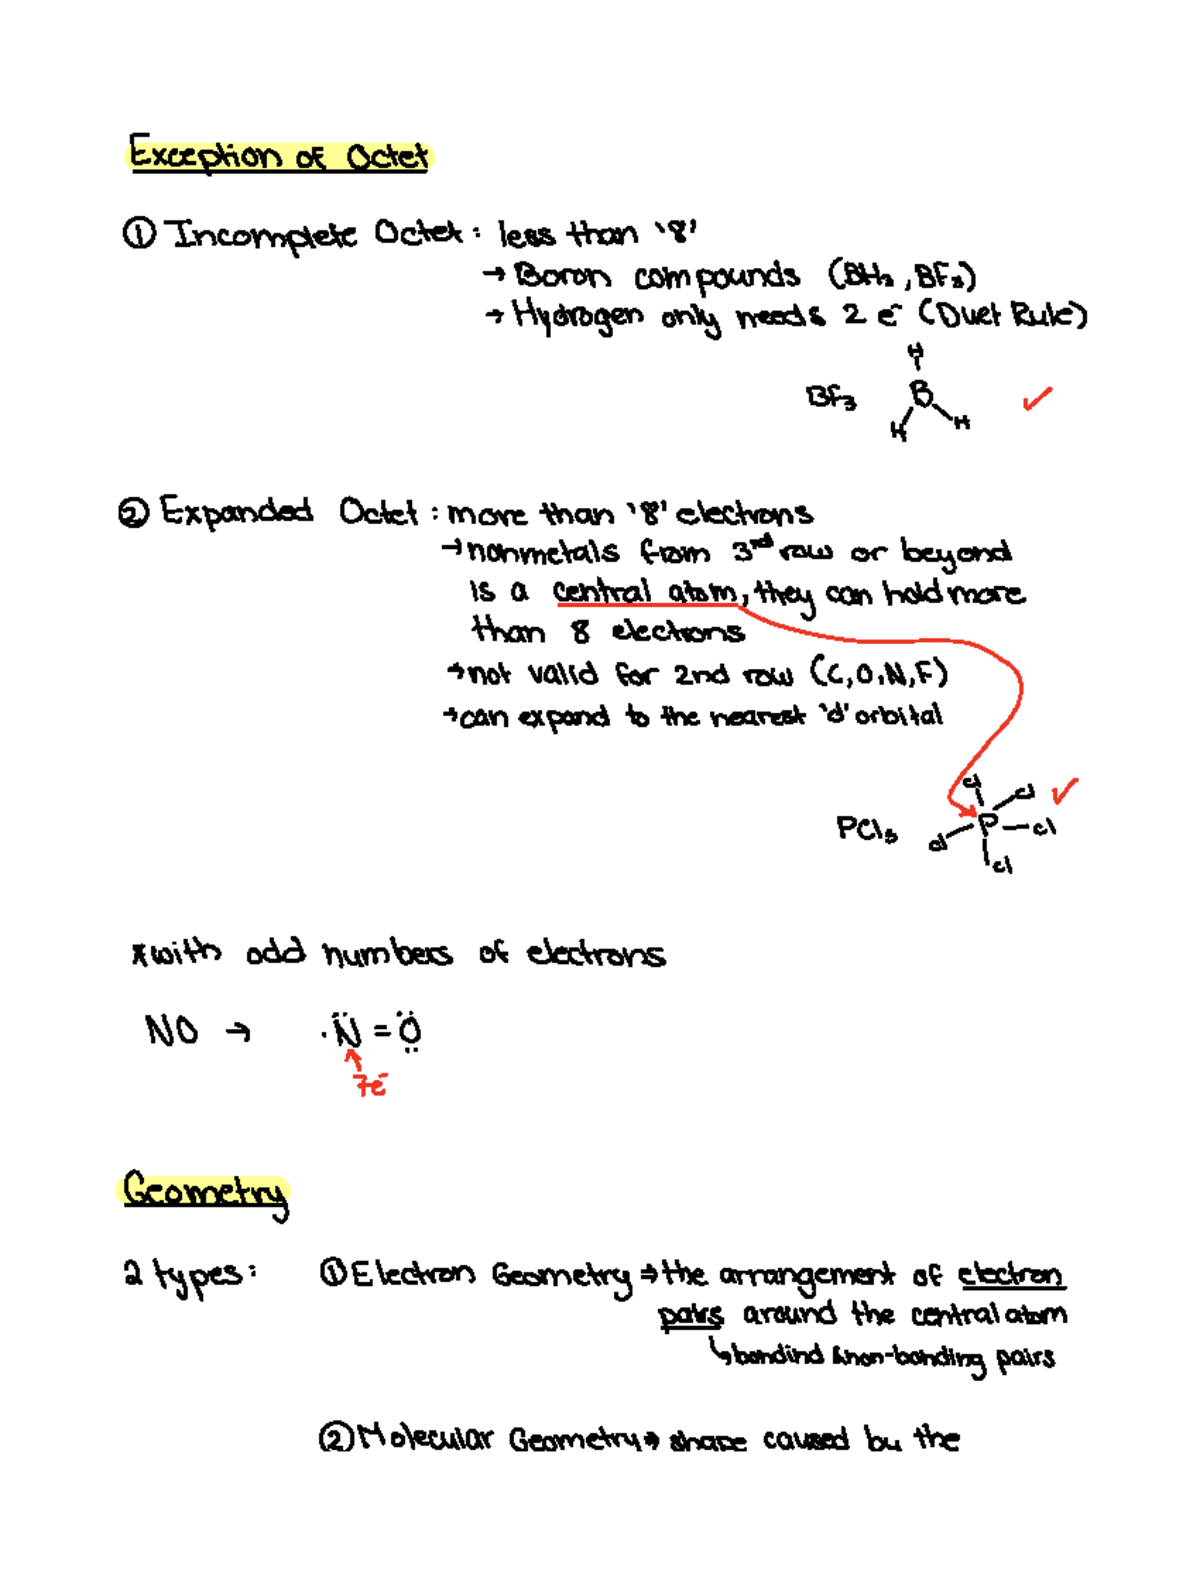 Exception of Octet
① Incomplete Octet: less than '8'
→ Boron compounds (BH₃, BF₃)
→ Hydrogen only needs 2 e⁻ (Duet Rule)
H
BF₃ B
H H
② Expanded Octet: more than '8' electrons
→ nonmetals from 3rd row or beyond
is a central atom, they can hold more
than 8 electrons
→ not valid for 2nd row (C,O,N,F)
→ can expand to the nearest 'd' orbital
Cl Cl
PCl₅ Cl P Cl
Cl
*with odd numbers of electrons
NO → ·N̈ = Ö
7e⁻
Geometry
2 types: ① Electron Geometry → the arrangement of electron
pairs around the central atom
↳ bondind & non-bonding pairs
② Molecular Geometry → shape caused by the